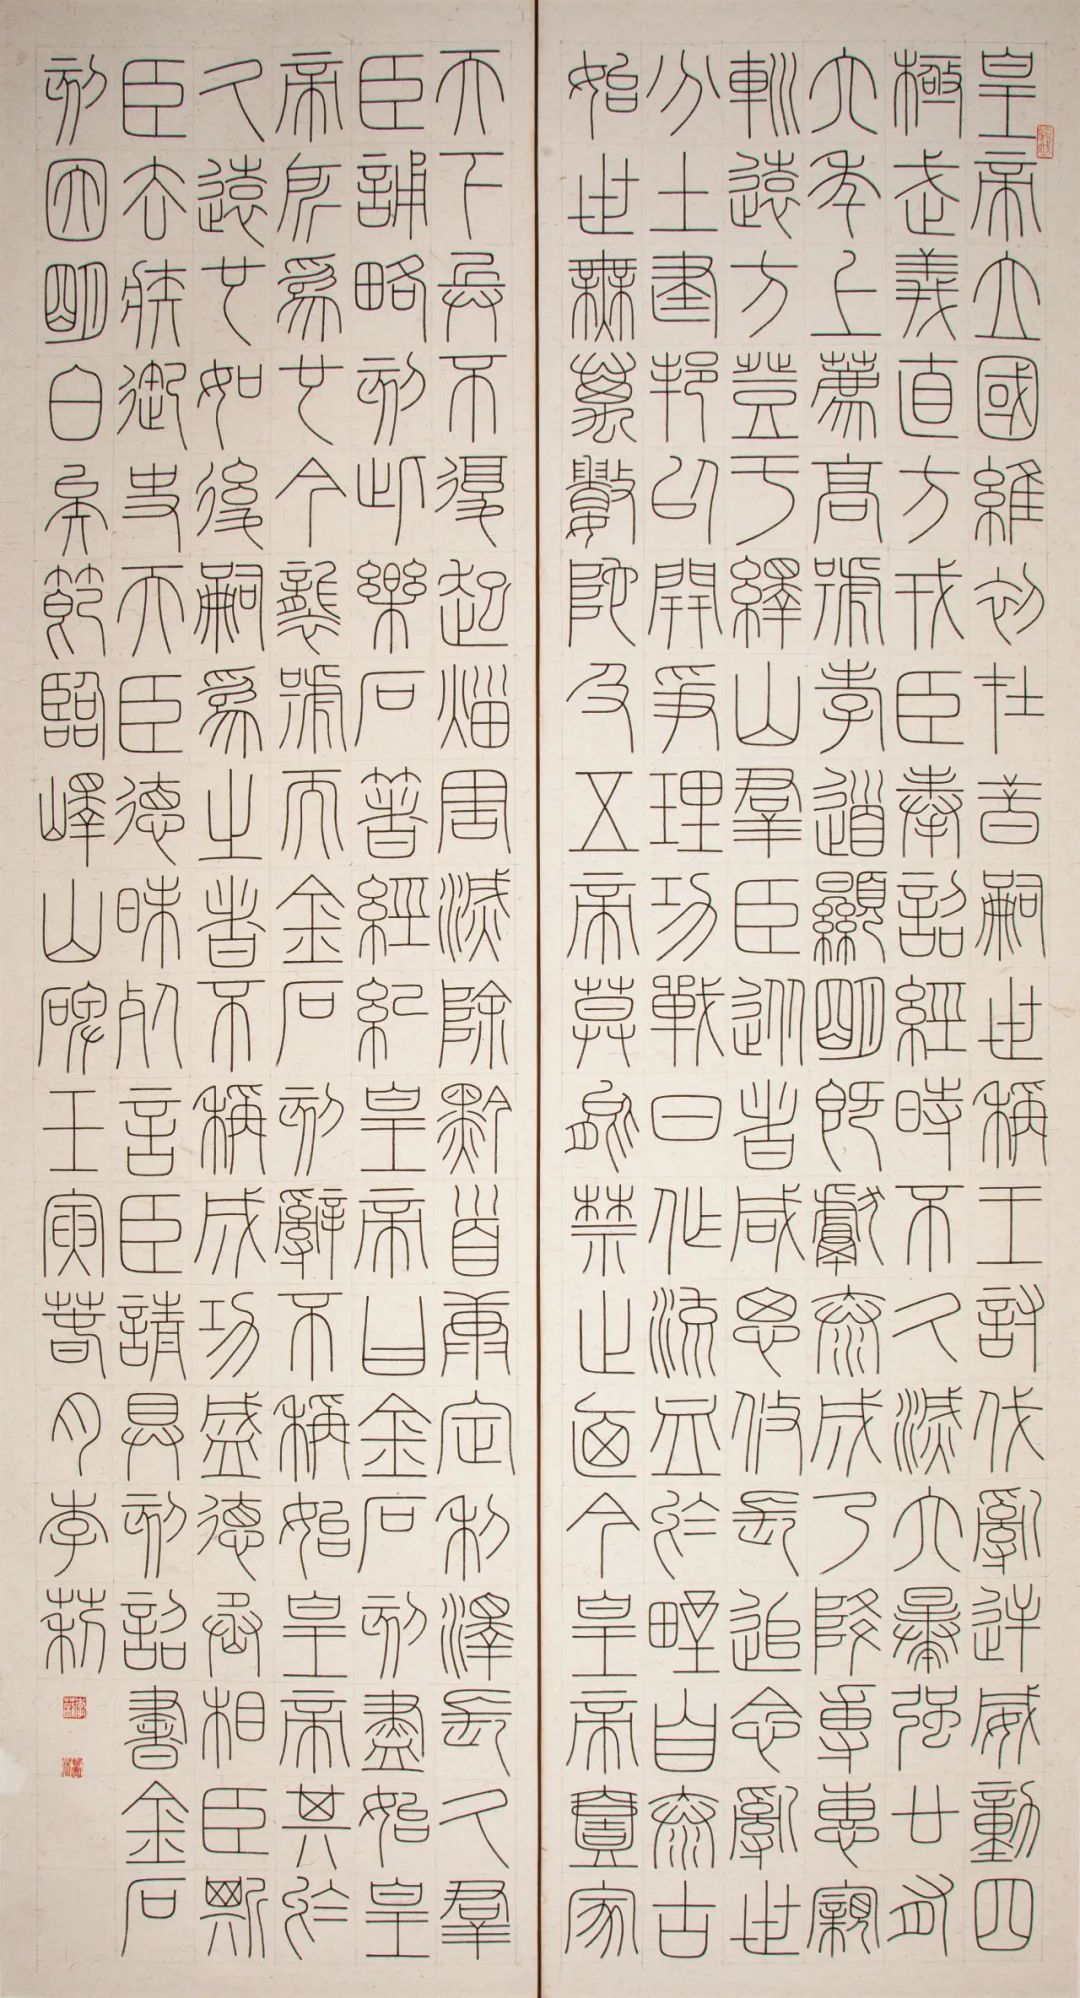 皇帝立國維初在昔嗣世稱王討伐亂逆威動四
極武義直方戎臣奉詔經時不久滅六暴強廿有
六年上薦高號孝道顯明既獻泰成乃降專惠親
巡遠方登于繹山群臣從者咸思攸長追念亂世
分土建邦以開爭理功戰日作流血於野自泰古
始世無萬數陀及五帝莫能禁止廼今皇帝壹家
天下兵不復起災害滅除黔首康定利澤長久群
臣誦略刻此樂石箸經紀皇帝曰金石刻盡始皇
帝所為也今襲號而金石刻辭不稱始皇帝其於
久遠也如後嗣為之者不稱成功盛德丞相臣斯
臣去疾御史夫臣德昧死言臣請具刻詔書金石
刻因明白矣節臨嶧山碑壬寅春月李莉